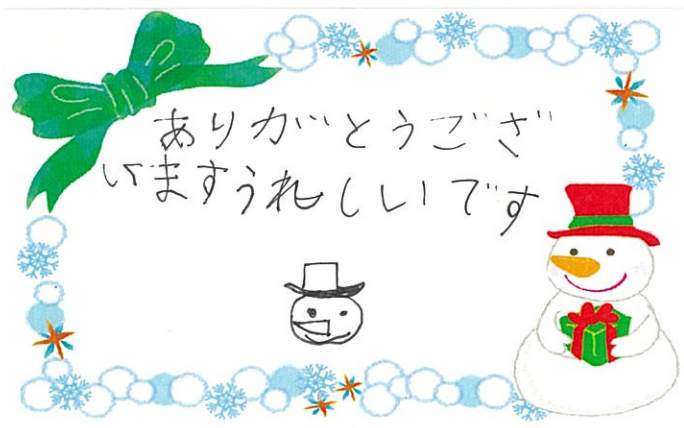 ありがとうござ
いますうれしいです